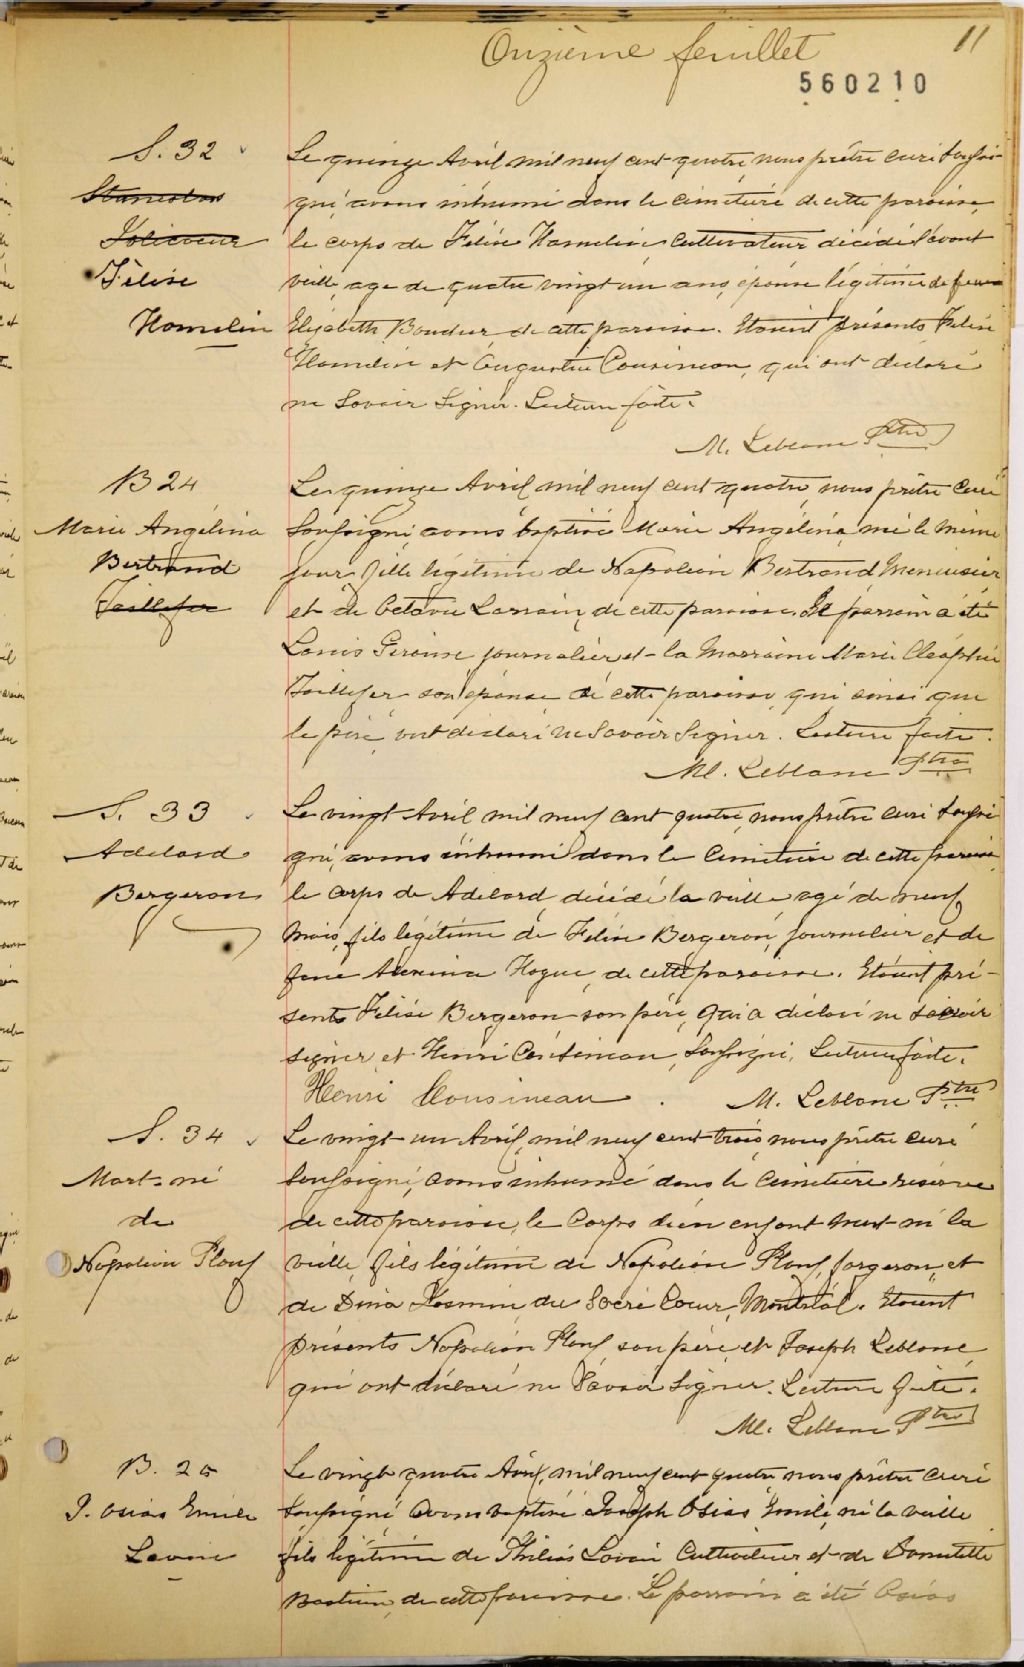 Onzième feuillet
11
560210
S. 32
Stanislas
Jolicoeur
Félix
Hamelin
Le quinze Avril mil neuf cent quatre, nous prêtre curé soussi-
gné, avons inhumé dans le cimetière de cette paroisse,
le corps de Félix Hamelin, cultivateur décédé l'avant
veille, agé de quatre vingt un ans, époux légitime de feue
Elizabeth de cette paroisse. Etaient présents Félix
Hamelin et Augustin Cousineau, qui ont déclaré
ne savoir signer. Lecture faite.
M. Leblanc Ptre
B 24
Marie Angélina
Bertrand
Taillefer
Le quinze Avril mil neuf cent quatre, nous prêtre curé
soussigné, avons baptisé Marie Angélina, née le même
jour, fille légitime de Napoléon Bertrand Menuisier
et de Octavie Lorrain, de cette paroisse. Le parrain a été
Louis journalier et la Marraine Marie Cléophée
Taillefer son épouse de cette paroisse, qui ainsi que
le père, ont déclaré ne savoir signer. Lecture faite.
M. Leblanc Ptre
S. 33
Adelard
Bergeron
Le vingt Avril mil neuf cent quatre, nous prêtre curé soussi
gné, avons inhumé dans le cimetière de cette paroisse,
le corps de Adelard décédé la veille agé de neuf
mois, fils légitime de Félix Bergeron, journalier et de
feue Hogue, de cette paroisse. Etaient pré-
sents Félix Bergeron son père, qui a déclaré ne savoir
signer, et Henri Cousineau, soussigné. Lecture faite.
Henri Cousineau. M. Leblanc Ptre
S. 34
Mort-né
de
Napoléon Plouf
Le vingt un Avril, mil neuf cent trois, nous prêtre curé
soussigné, avons inhumé dans le cimetière réservé
de cette paroisse, le corps d'un enfant mort-né la
veille, fils légitime de Napoléon Plouf, forgeron, et
de Dina du Sacré Coeur, Montréal. Etaient
présents Napoléon Plouf, son père, et Joseph Leblanc,
qui ont déclaré ne savoir signer. Lecture faite.
M. Leblanc Ptre
B. 25
J. Osias Emile
Lavoie
Le vingt quatre Avril, mil neuf cent quatre nous prêtre curé
soussigné avons baptisé Joseph Osias Emile, né la veille
fils légitime de Philias Lavoie Cultivateur et de Donatille
Bastien, de cette paroisse. Le parrain a été Osias